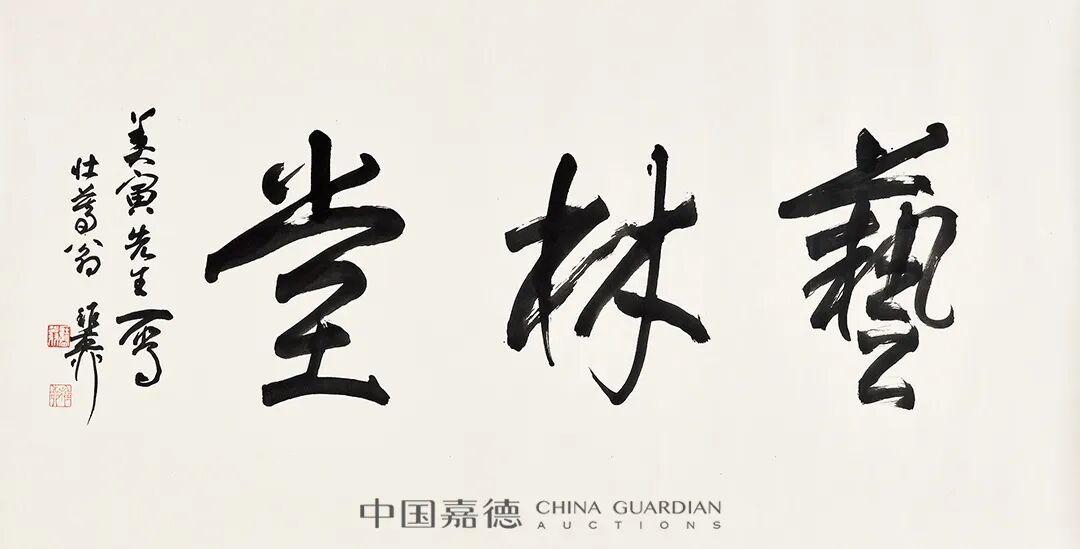 藝林堂
美寅先生
壮暮翁 稚柳
中国嘉德 CHINA GUARDIAN
AUCTIONS